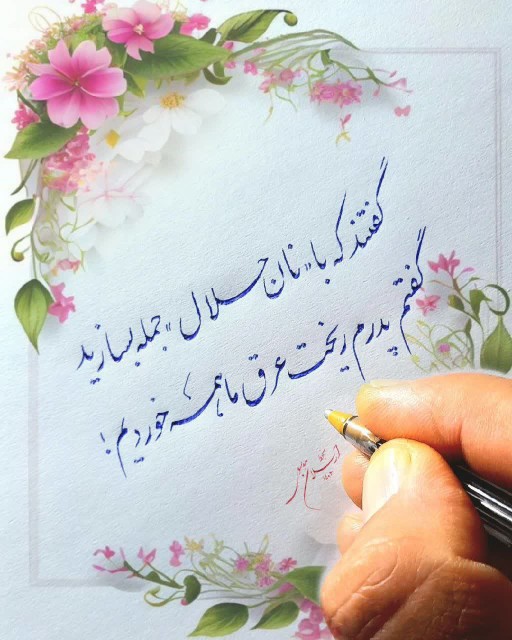 گفتند که با «نان حلال» جمله بسازید
گفتم پدرم ریخت عرق ما همه خوردیم!